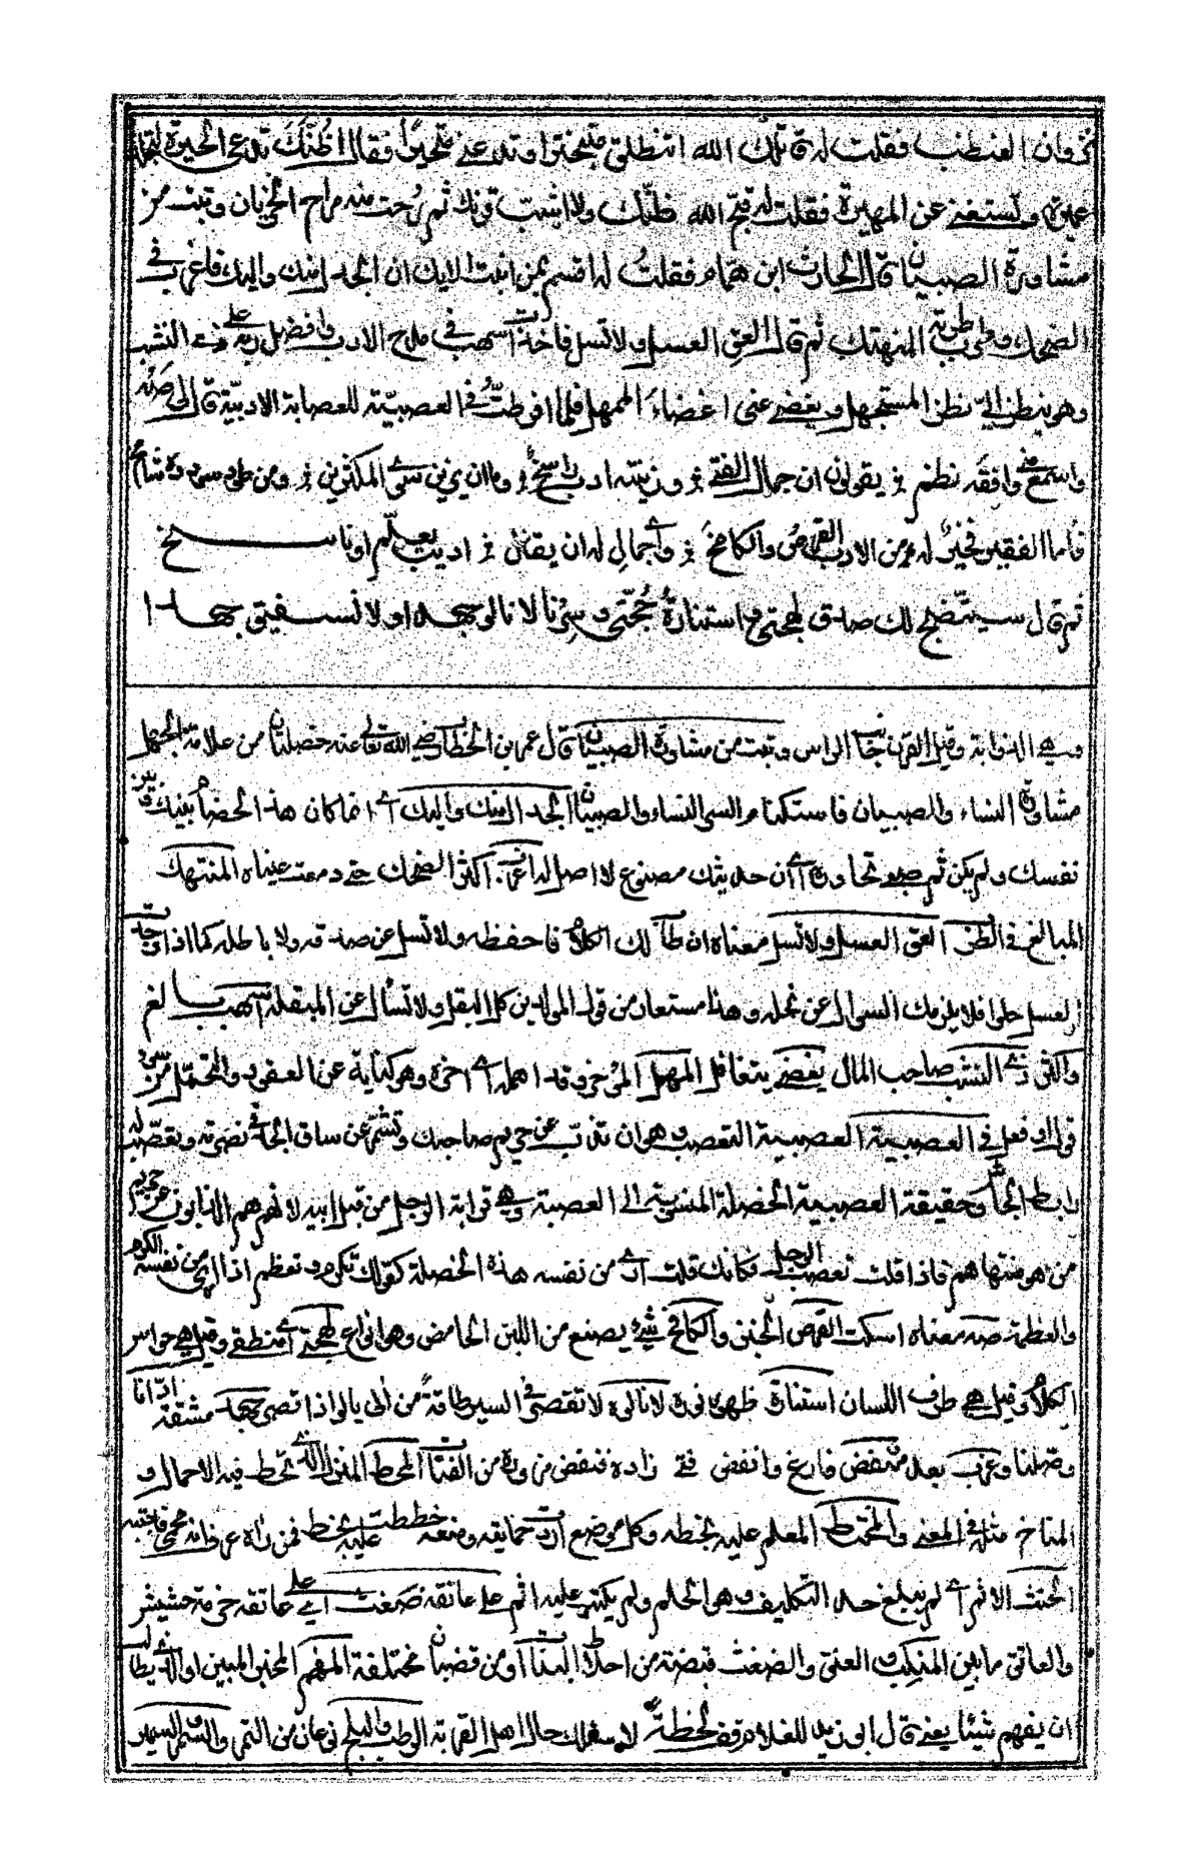 فقلت له قاتلك الله انتظلق متبخترا وتدعنى متحيرا فقال اظنك تدعى الحيرة
وتستغنى عن المهيرة فقلت له قبح الله ظنك ولا اشب قرنك ثم رحت منه مراح الخزيان وتبت من
مشاورة الصبيان قال الحارث ابن همام فقلت له اقسم بمن انبت الايك ان الجدل منك واليك فاغرب فى
الضحك وطرب طربة المنهتك ثم قال العق العسل ولا تسل فاخذت اسهب فى مدح الادب وافضل ربه على ذى النشب
وهو ينظر الى نظر المستجهل ويغضى عنى اغضاء الممهل فلما افرطت فى العصبية للعصابة الادبية قال لى صه
واسمع منى وافقه نظم يقولون ان جمال الفتى وزينته ادب راسخ وما ان يزين سوى المكثرين ومن طود سودده شامخ
فاما الفقير فخير له من الادب القرص والكامخ واى جمال له ان يقال اديب يعلم او ناسخ
ثم قال سيتضح لك صدق لهجتى واستنارة حجتى وسرنا لا نالو جهدا ولا نستفيق جهدا
وهى الذوابة وقيل القرن جانب الراس وتبت من مشاورة الصبيان قال عمر بن الخطاب رضى الله تعالى عنه خصلتان من علامة الجهل
مشاورة النساء والصبيان فاستكتام السر النساء والصبيان الجدل منك واليك اى انما كان هذا الخصام بينك وبين
نفسك ولم يكن ثم صبى تحاوره اى ان حديثك مصنوع لا اصل له اغرب اكثر الضحك حتى دمعت عيناه المنتهك
المبالغ فى الطرب العق العسل ولا تسل معناه ان طاب لك الكلام فاحفظه ولا تسل عن صدقه ولا باطله كما اذا وجدت
العسل حلوا فلا يلزمك السوال عن نحله وهذا مستعار من قول المولدين كل البقل ولا تسأل عن المبقلة اسهب بالغ
واكثر ذى النشب صاحب المال يغضى يتغافل الممهل الموخر وقد امهله اى اخره وهو كناية عن العفو والتحمل من سوء
العصبية التعصب وهو ان تذب عن حريم صاحبك وتشمر عن ساق الجد فى نصرته وتعصب له
وحقيقة العصبية الخصلة المنسوبة الى العصبة وهى قرابة الرجل من قبل ابيه لانهم هم الذابون عن حريم
من هو منتهاهم فاذا قلت تعصب الرجل فكانك قلت ارى من نفسه هذه الخصلة كقولك تكرم وتعظم اذا ارى من نفسه الكرم
والعظمة صه معناه اسكت القرص الخبز والكامخ شىء يصنع من اللبن الحامض وهو انواع لهجتى اى منطقى وقيل هى جواس
الكلام وقيل هى طرف اللسان استنارة ظهور نور لا نالو لا تقصر فى السير طاقة من الى يالو اذا قصر جهدا مشقة ادانا
وصلنا وعزب بعد منفض فارغ وانفض فنى زاده فنفض مزوده من الفتات المحط المنزل الذى تحط فيه الاحمال و
المناخ مثله فى المعنى والمختط المعلم عليه بخطه وكل موضع اردت حمايته وضعت خططت عليه بخط
الحنث الاثم اى لم يبلغ حد التكليف وهو الحلم ولم يكتب عليه اثم على عاتقه ضغث اى على عاتقه حزمة حشيش
والعاتق مابين المنكب والعنق والضغث قبضة من اخلاط النبات او من قضبان مختلفة المفهم المخبر المبين او الذى يطلب
ان يفهم شيئا يعنى قال ابو زيد للغلام وقف لحظة